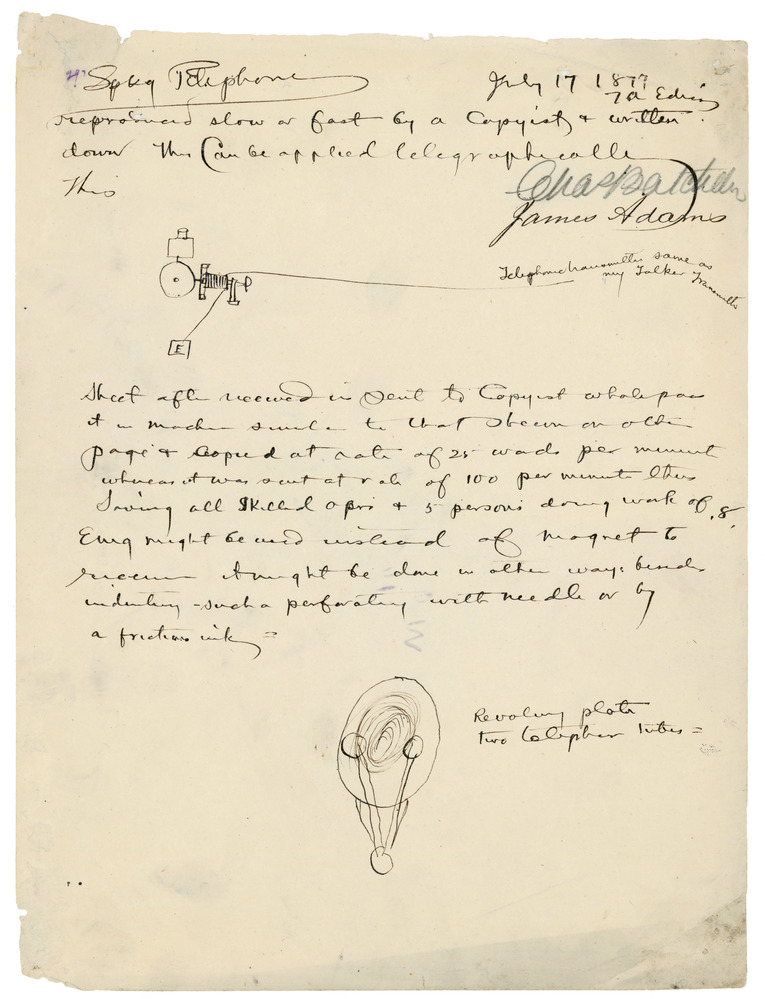 Spkg Telephone
July 17 1877
T A Edison
reproduced slow or fast by a Copyist & written
down This Can be applied telegraphically
This
Chas Batchelor
James Adams
Telephone transmitter same as
my Talker Transmitter
E
Sheet after received is sent to Copyist who pass
it in machine similar to that shewn on other
page & copied at rate of 25 words per minute
whereas it was sent at rate of 100 per minute thus
Saving all Skilled oprs & 5 persons doing work of 8.
Emg might be used instead of magnet to
receive it might be done in other ways besides
indenting - such a perforating with needle or by
a friction ink =
Revolving plate
two telephone tubes =